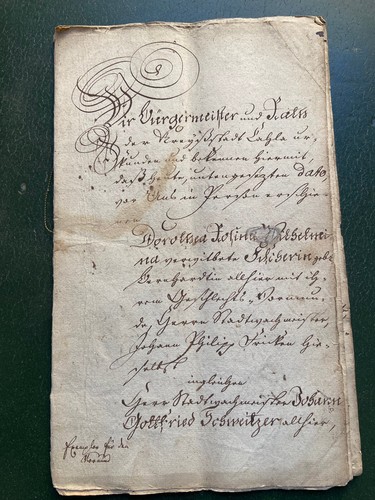 Wir Bürgermeister und Rath
der Kreyßstadt Cahla ur,
kunden und bekennen hiermit,
daß heute, untengesetzten dato
vor Uns in Person erschie
nen
Dorothea Rosina Wilhelmi
na verwittbete Fischerin geb.
Bernhardtin allhier mit ih,
rem Geschlechts-Vormun,
de, Herrn Stadtwachtmeister,
Johann Philipp Fricken hie,
selbst
ingleichen
Herr Stadtwachtmeister Johann
Gottfried Schweitzer allhier,
Exemplar für den